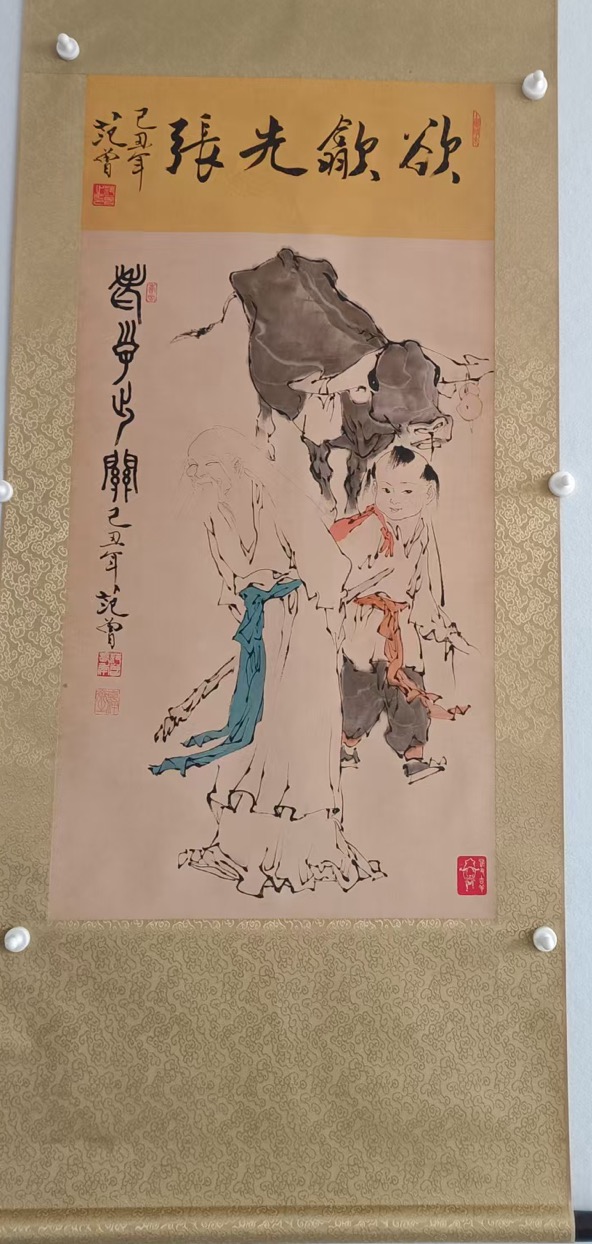 欲歙先張
己丑年
范曾
老子出關
己丑年
范曾